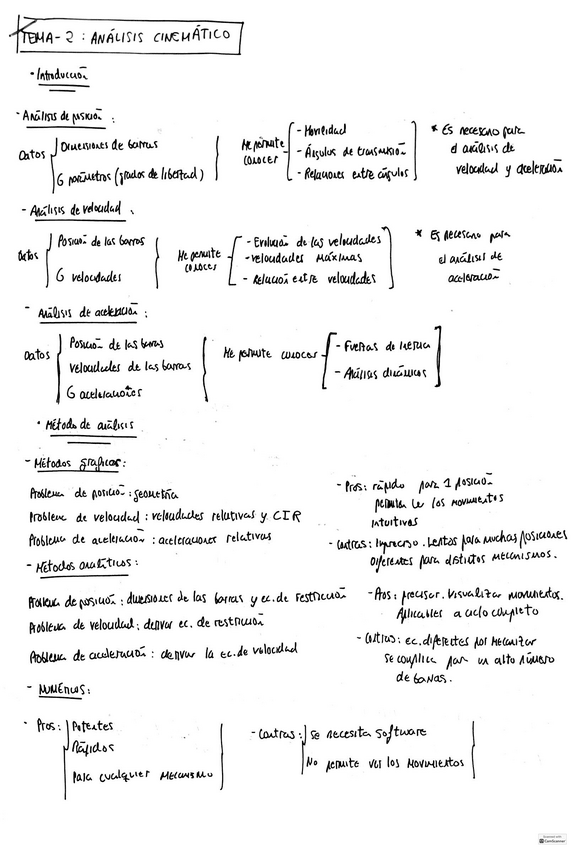 TEMA-2: ANÁLISIS CINEMÁTICO
· Introducción
- Análisis de posición:
Datos
Dimensiones de barras
G parámetros (grados de libertad)
Me permite conocer
- Movilidad
- Ángulos de transmisión
- Relaciones entre ángulos
* Es necesario para
el análisis de
velocidad y aceleración
- Análisis de velocidad:
Datos
Posición de las barras
G velocidades
Me permite conocer
- Evolución de las velocidades
- velocidades máximas
- Relación entre velocidades
* Es necesario para
el análisis de
aceleración
- Análisis de aceleración:
Datos
Posición de las barras
velocidades de las barras
G aceleraciones
Me permite conocer
- Fuerzas de inercia
- Análisis dinámicos
· Método de análisis
- Métodos gráficos:
Problema de posición: geometría
Problema de velocidad: velocidades relativas y CIR
Problema de aceleración: aceleraciones relativas
- Pros: rápido para 1 posición
permite ver los movimientos
intuitivos
- Contras: Impreciso. Lentos para muchas posiciones
Diferentes para distintos mecanismos.
- Métodos analíticos:
Problema de posición: dimensiones de las barras y ec. de restricción
Problema de velocidad: derivar ec. de restricción
Problema de aceleración: derivar la ec. de velocidad
- Pros: precisos. Visualizar movimientos.
Aplicables a ciclo completo
- Contras: ec. diferentes por mecanismo
Se complica por un alto número
de barras.
- NUMÉRICOS:
- Pros:
Potentes
Rápidos
Para cualquier mecanismo
- Contras:
Se necesita software
No permite ver los movimientos
CamScanner